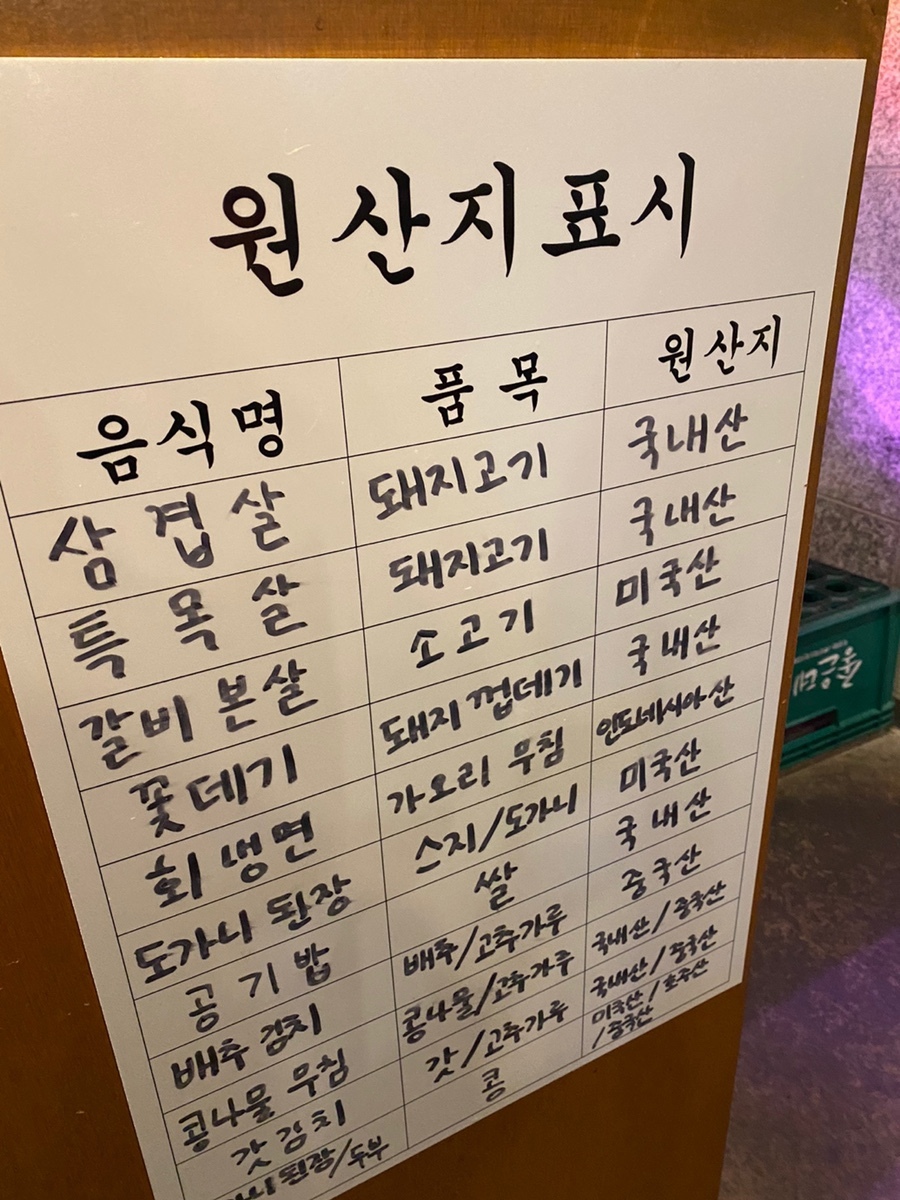 원산지표시
음식명 품목 원산지
삼겹살 돼지고기 국내산
특목살 돼지고기 국내산
갈비본살 소고기 미국산
꽃데기 돼지껍데기 국내산
회냉면 가오리무침 인도네시아산
도가니된장 스지/도가니 미국산
공기밥 쌀 국내산
배추김치 배추/고추가루 중국산
콩나물무침 콩나물/고추가루 국내산/중국산
갓김치 갓/고추가루 국내산/중국산
된장/두부 콩 미국산/호주산
/중국산